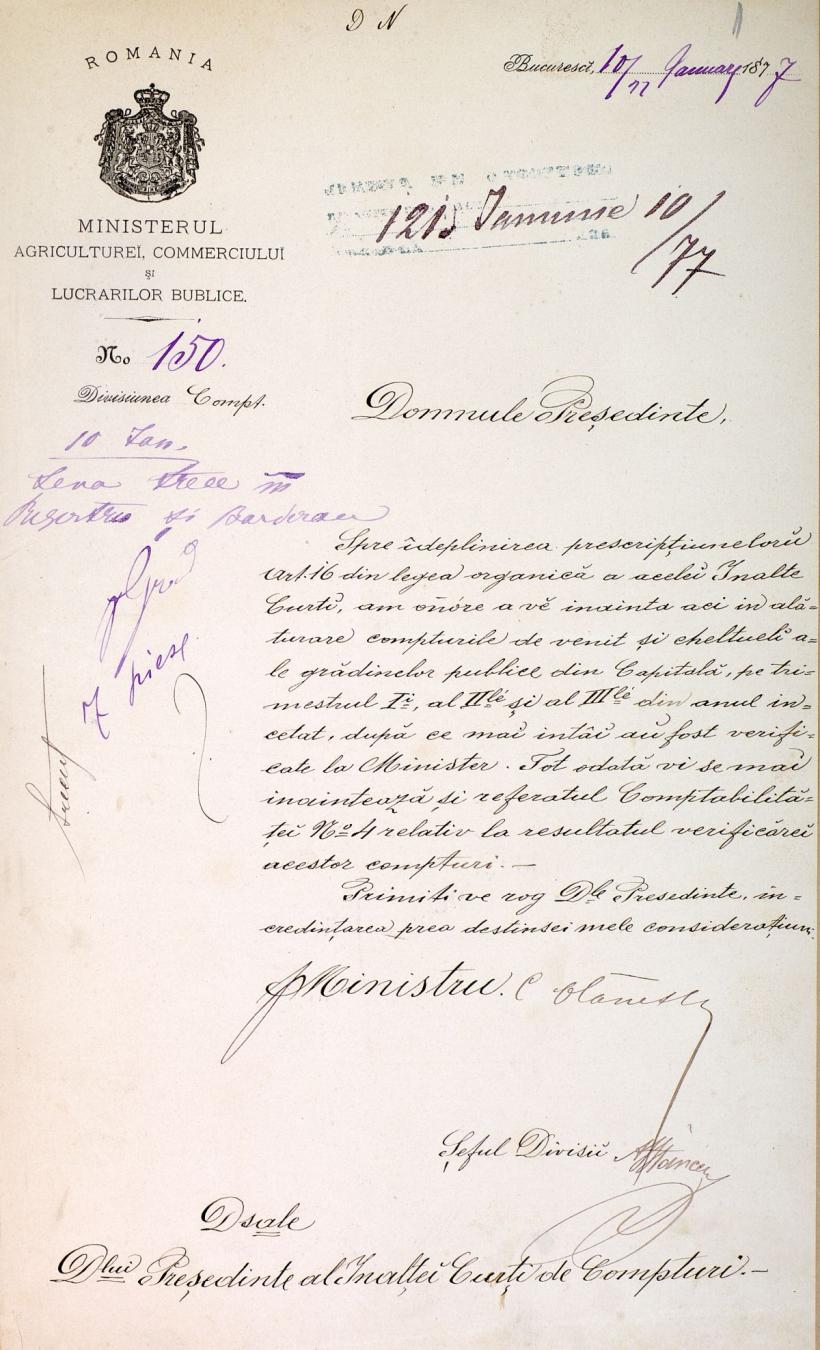 D N
ROMANIA
MINISTERUL
AGRICULTUREĬ, COMMERCIULUĬ
ȘI
LUCRARILOR BUBLICE.
No 150.
Divisiunea Compt.
Bucuresci, 10/22 January 1877
1215 Ianuarie 10/77
10 Ian.
trece in
Registru si
7 piese
Domnule Președinte,
Spre îdeplinirea prescripțiunelorŭ
Art. 16 din legea organică a acelei Inalte
Curti, am onóre a vĕ inainta aci in ală=
turare compturile de venit și cheltueli a=
le grădinelor publice din Capitală, pe tri=
mestrul I.i, al II.lé și al III.lé din anul in=
cetat, după ce mai intâi au fost verifi=
cate la Minister. Tot odată vi se mai
inaintează și referatul Comptabilită=
ței No 4 relativ la resultatul verificărei
acestor compturi.—
Primiti ve rog Dle Presedinte, in=
credințarea prea destinsei mele considerațiuni.
p Ministru.
Șeful Divisii
Dsale
Dlui Președinte al Inaltei Curți de Compturi.—